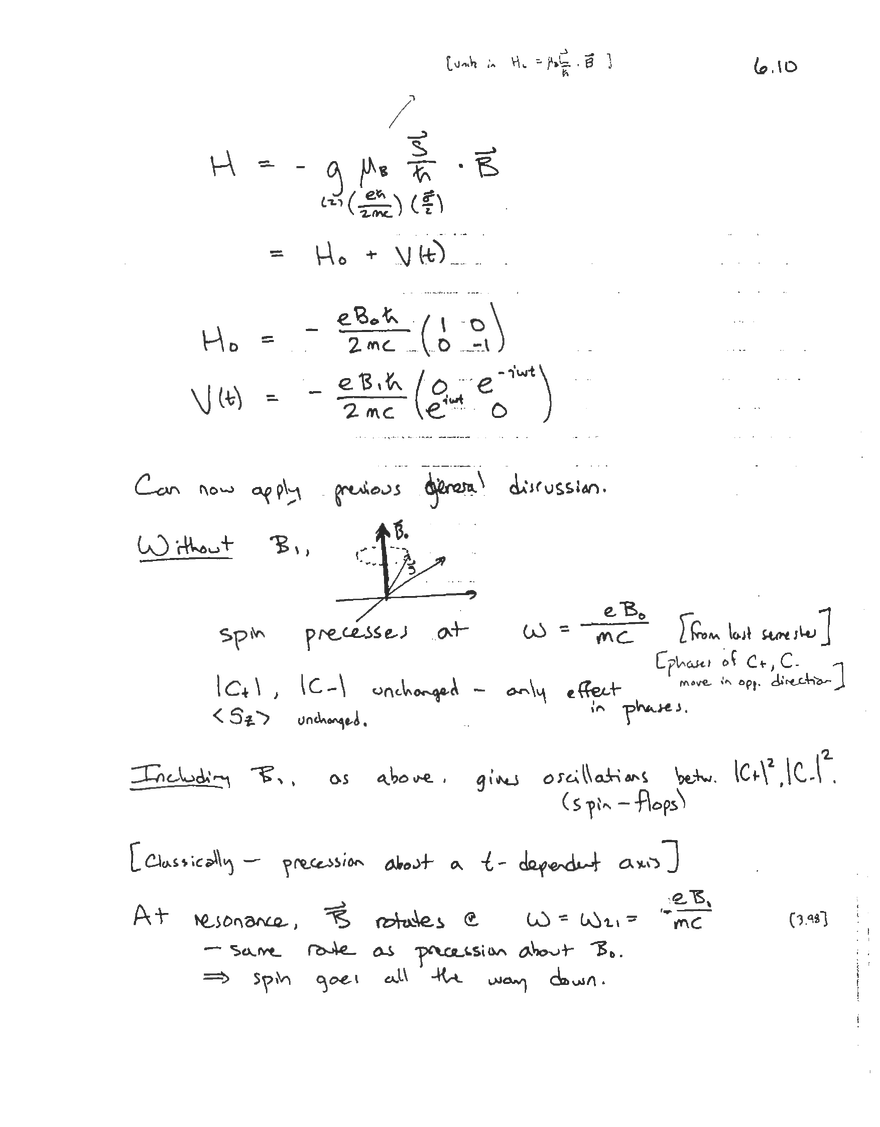 [units in H₀ = μ_B S⃗/ħ · B⃗ ]
6.10
H = - g μ_B S⃗/ħ · B⃗
(2) (eħ/2mc) (σ⃗/2)
= H₀ + V(t)
H₀ = - eB₀ħ/2mc (1 0; 0 -1)
V(t) = - eB₁ħ/2mc (0 e^{-iωt}; e^{iωt} 0)
Can now apply previous general discussion.
Without B₁,
B⃗₀
S⃗
spin precesses at ω = eB₀/mc [from last semester]
[phases of C₊, C₋
move in opp. direction]
|C₊|, |C₋| unchanged – only effect
in phases.
<S_z> unchanged.
Including B₁, as above, gives oscillations betw. |C₊|², |C₋|².
(spin-flops)
[Classically – precession about a t-dependent axis]
At resonance, B⃗ rotates @ ω = ω₂₁ = - eB₁/mc [3.98]
– same rate as precession about B₀.
⇒ spin goes all the way down.